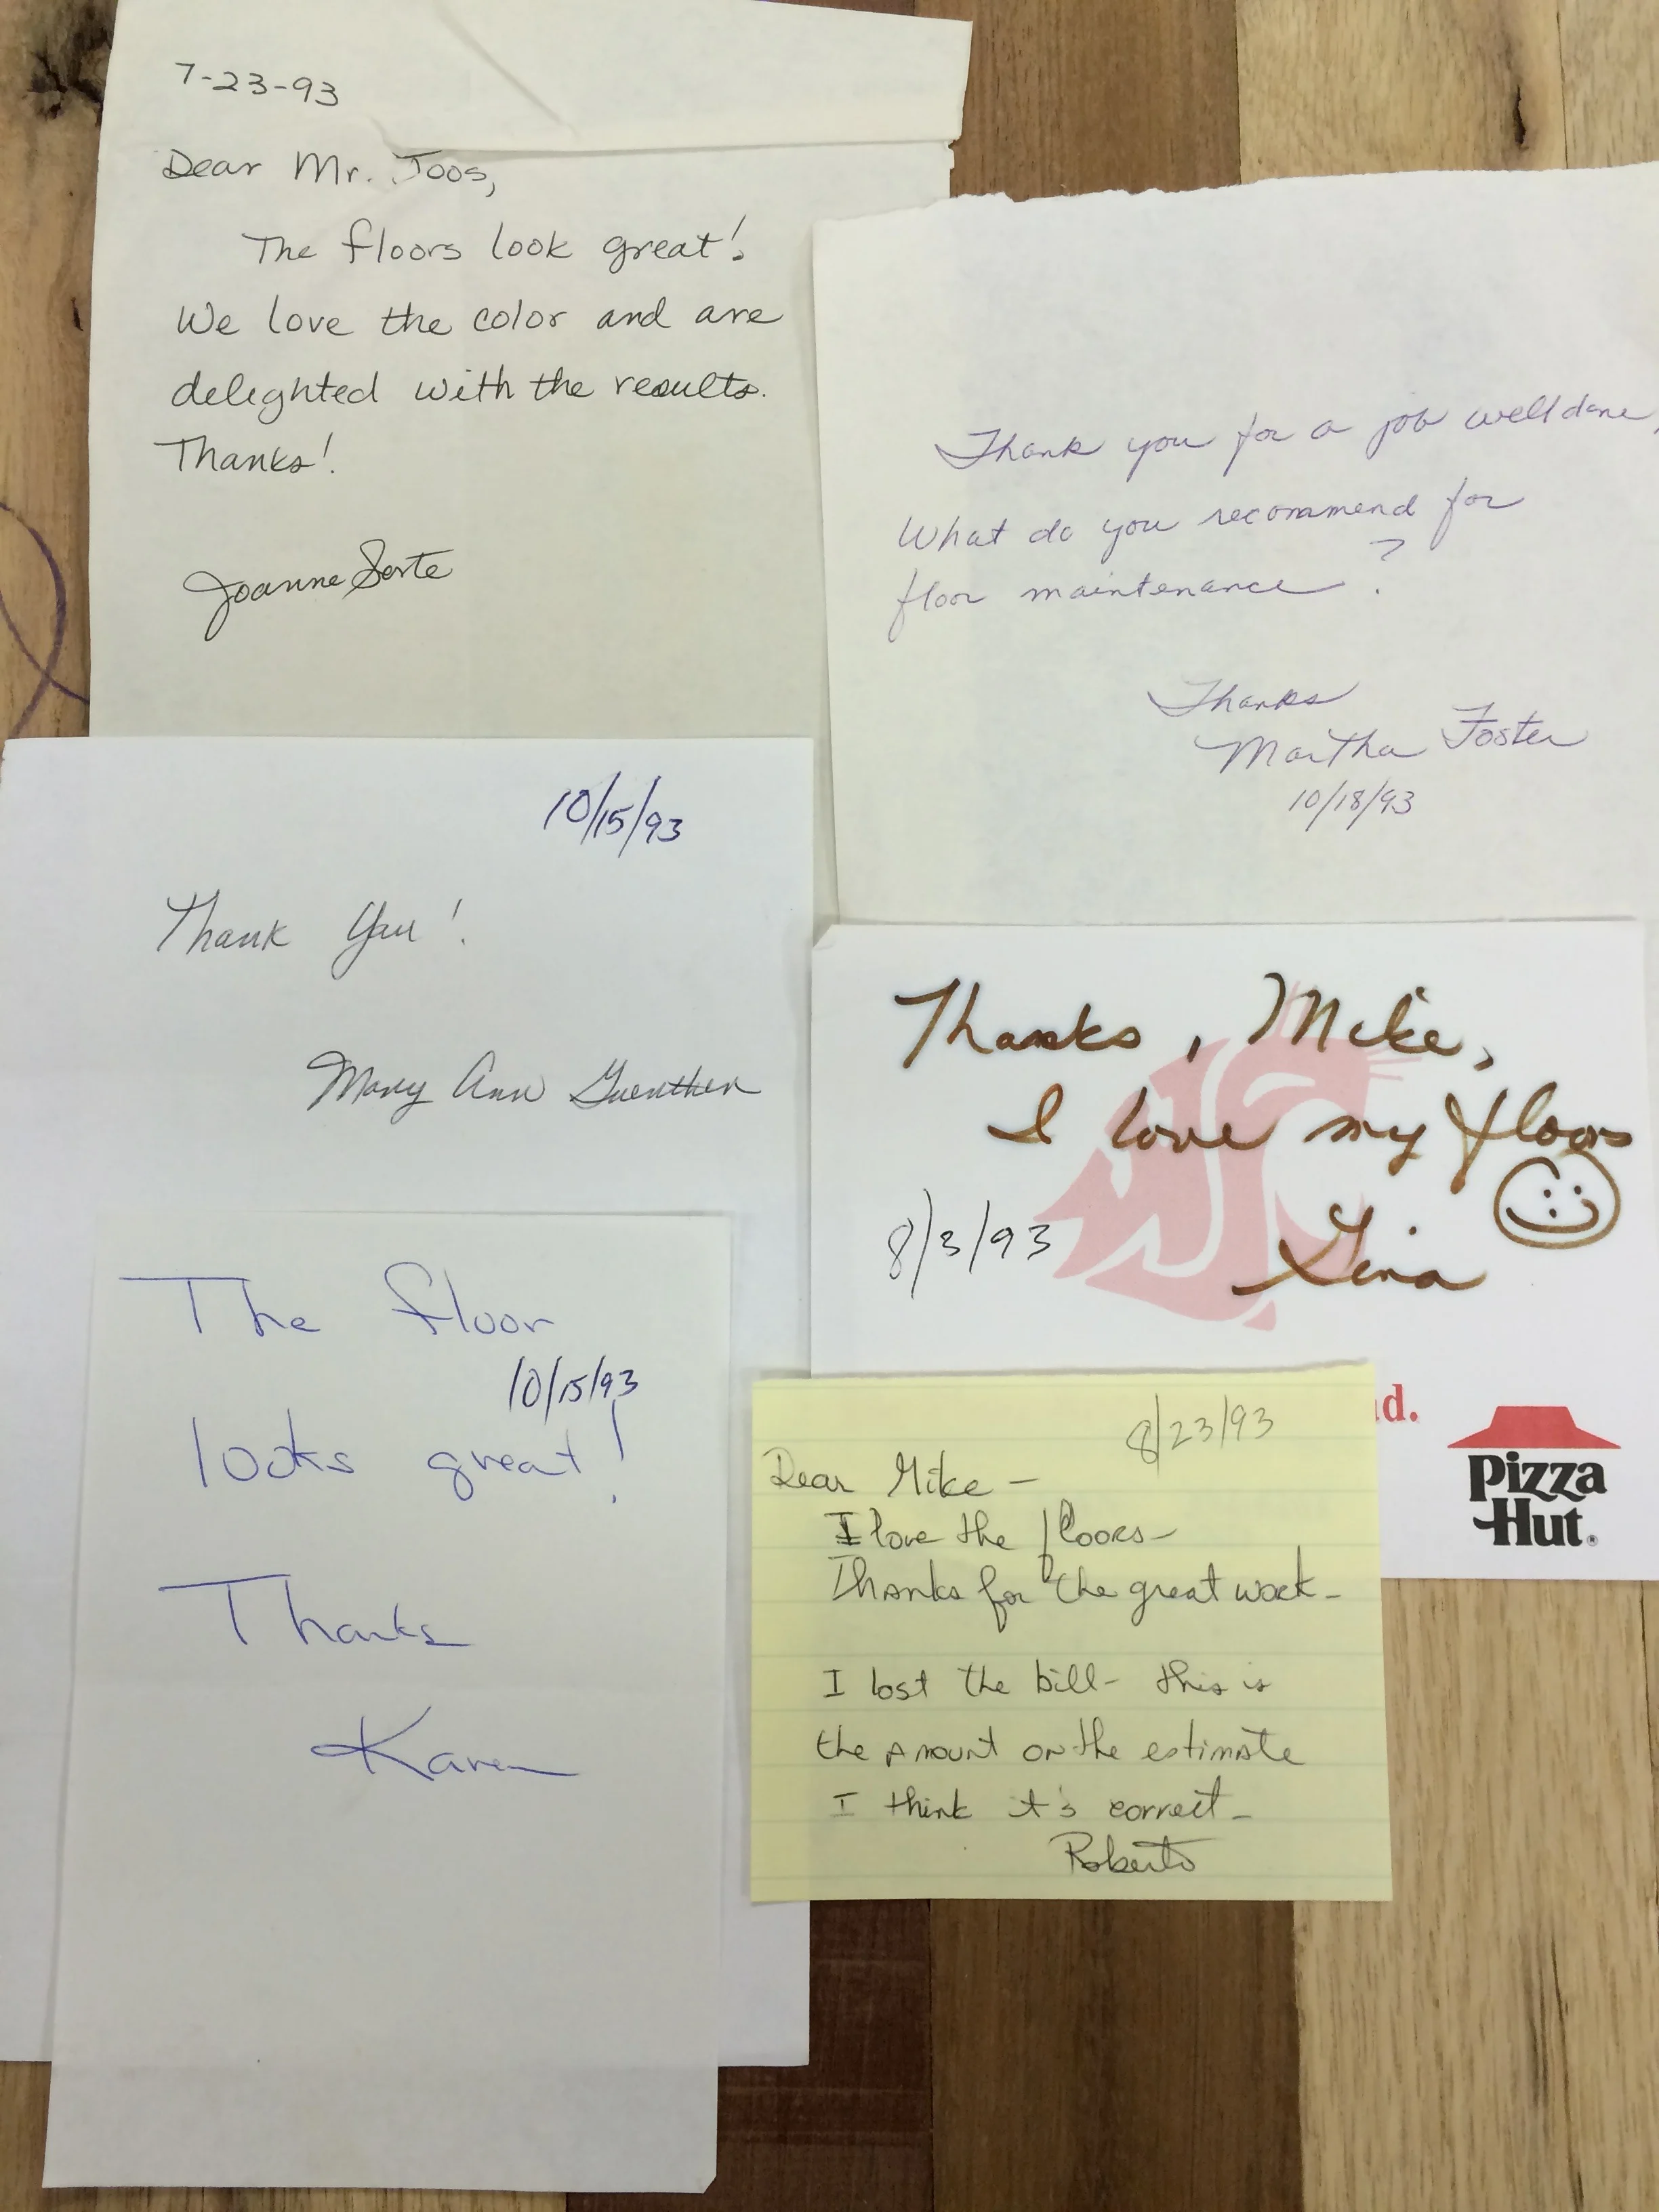 7-23-93
Dear Mr. Joos,
The floors look great!
We love the color and are
delighted with the results.
Thanks!
Joanne Sorte
Thank you for a job well done,
What do you recommend for
floor maintenance ?
Thanks
Martha Foster
10/18/93
10/15/93
Thank You!
Mary Ann Guenther
Thanks, Mike,
I love my floors
8/3/93
Gina
d.
Pizza
Hut.®
The floor
10/15/93
looks great!
Thanks
Karen
8/23/93
Dear Mike –
I love the floors –
Thanks for the great work –
I lost the bill – this is
the amount on the estimate
I think it's correct –
Roberto